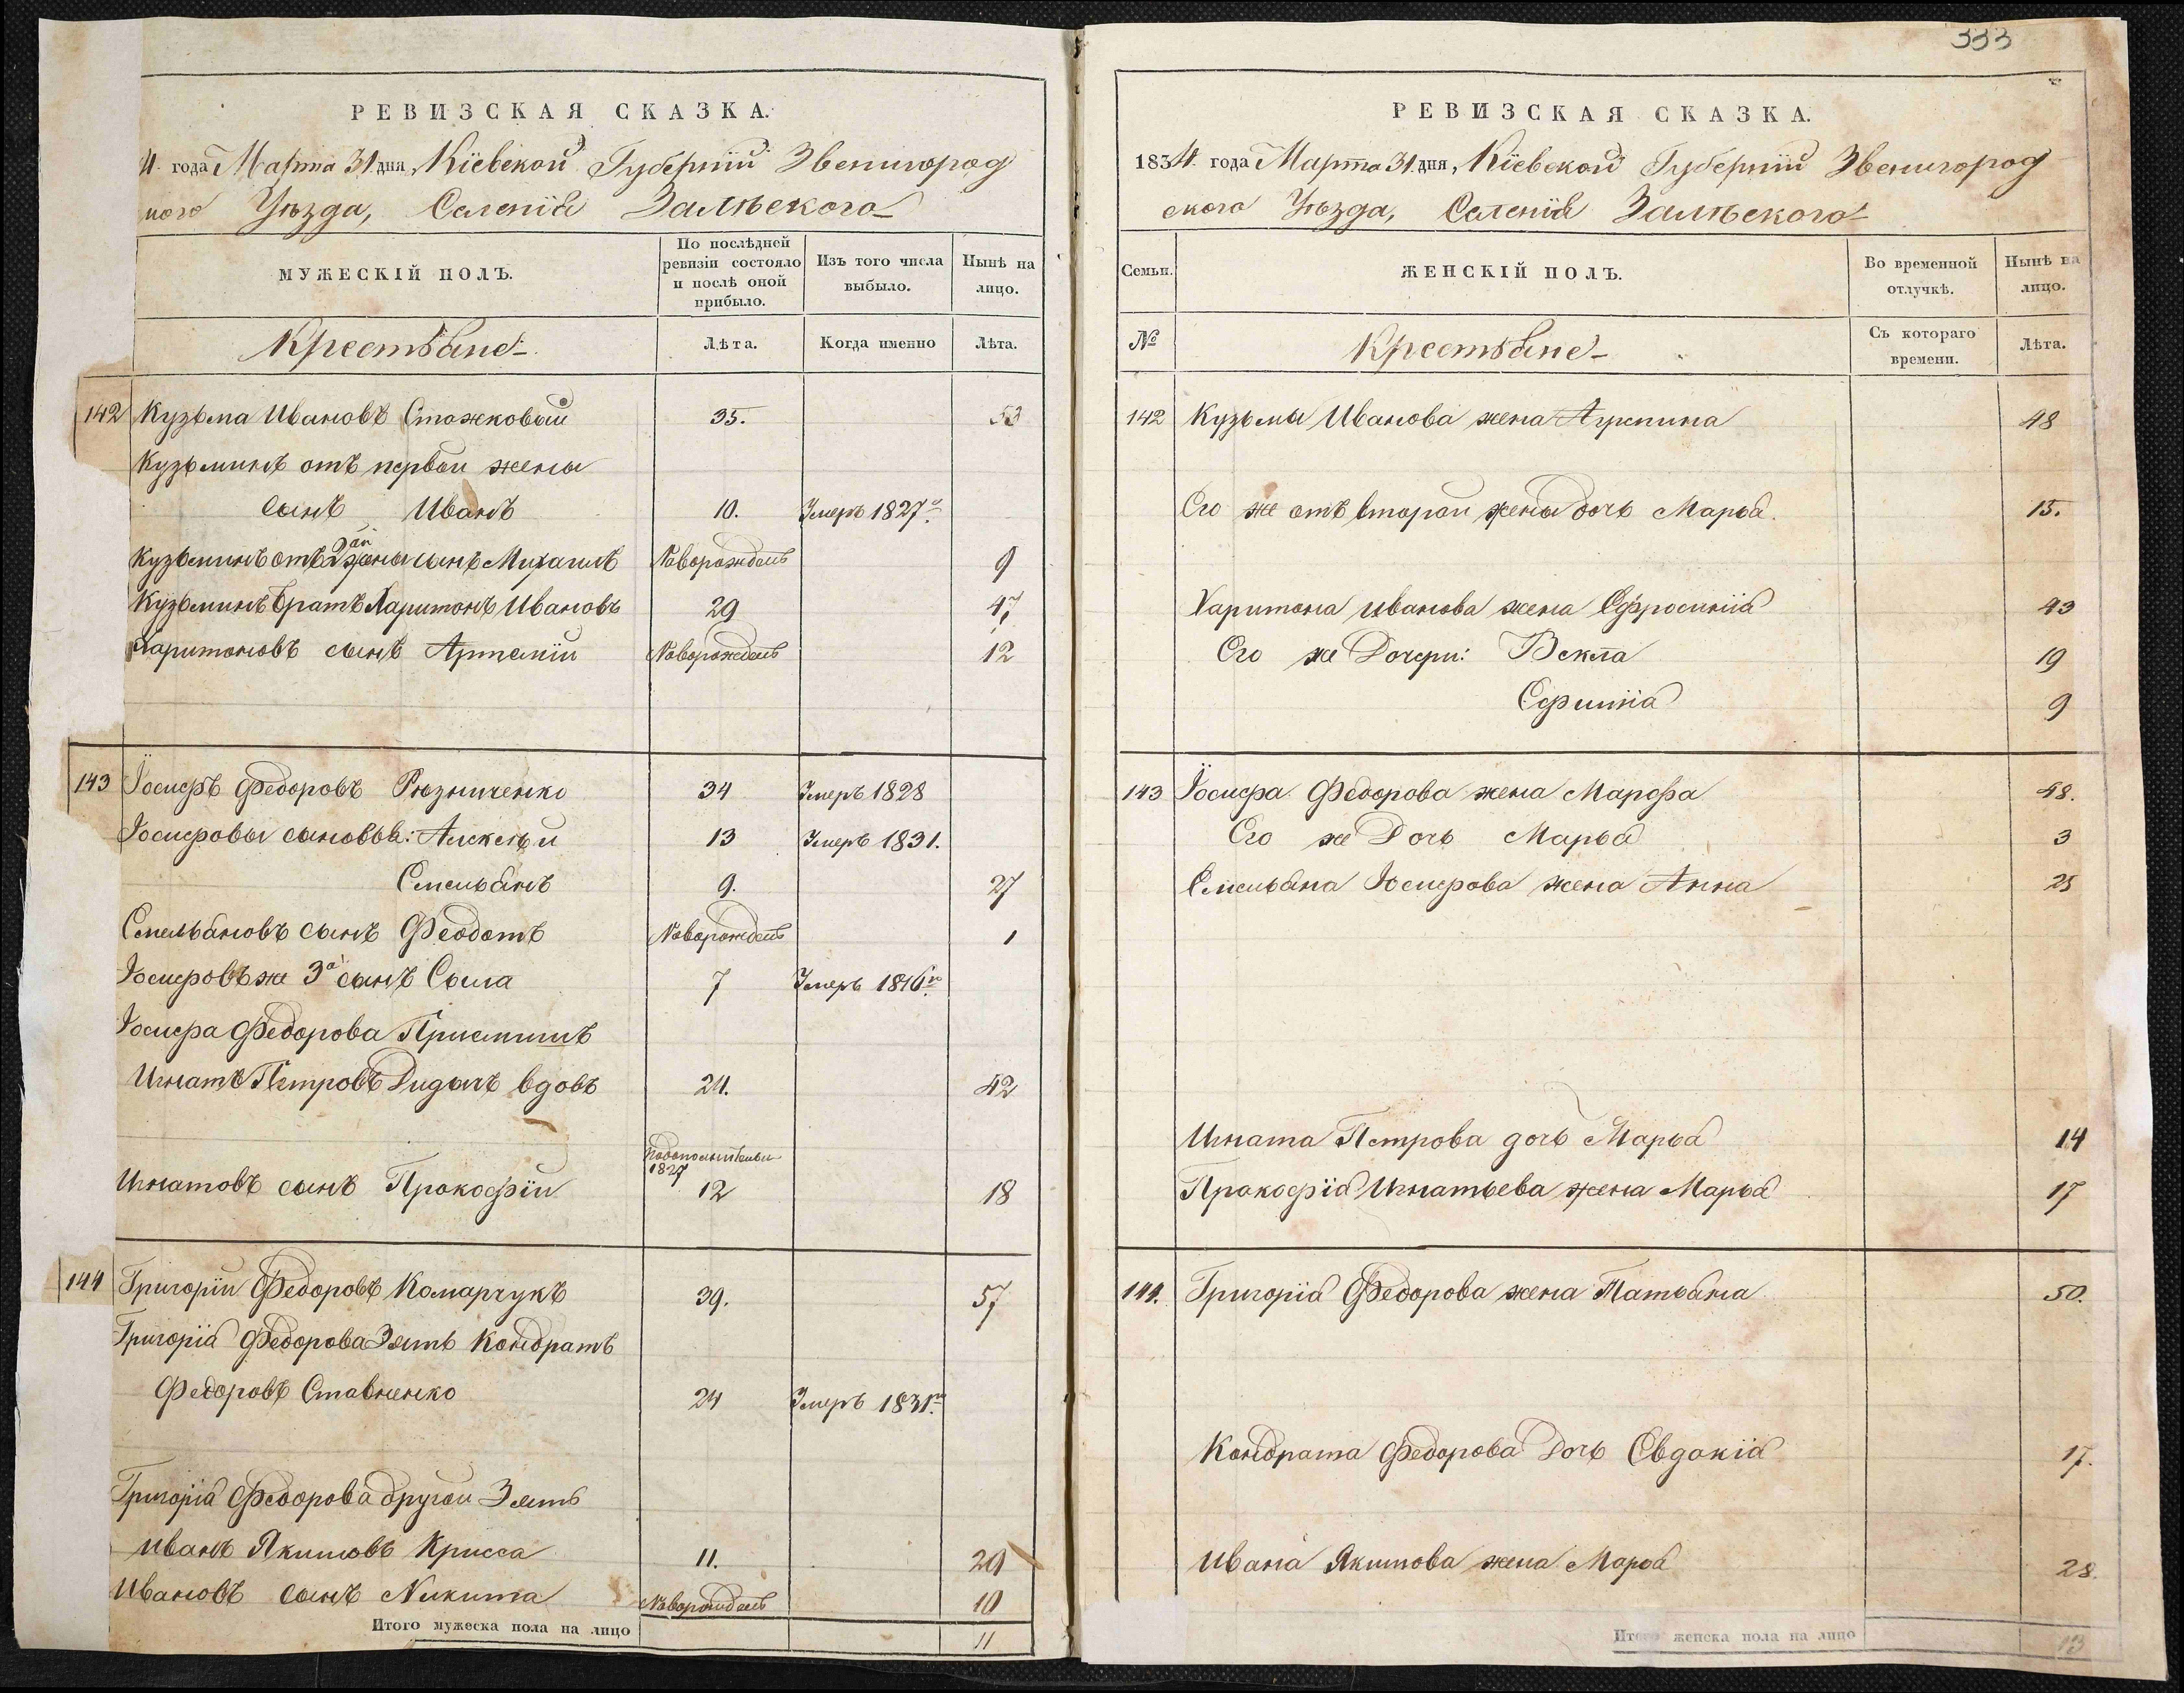 РЕВИЗСКАЯ СКАЗКА.
4. года Марта 31 дня, Кіевской Губерніи Звенигород
ского Уѣзда, Селенія Залѣского
МУЖЕСКІЙ ПОЛЪ.
По послѣдней ревизіи состояло и послѣ оной прибыло.
Изъ того числа выбыло.
Нынѣ на лицо.
Крестьяне
Лѣта.
Когда именно
Лѣта.
142 Кузьма Ивановъ Стожковый 35. 53
Кузьминъ отъ первой жены
сынъ Иванъ 10. Умеръ 1827го
Кузьминъ отъ 2ой жены сынъ Михаилъ Новорожденъ 9
Кузьминъ братъ Харитонъ Ивановъ 29 47
Харитоновъ сынъ Артемій Новорожденъ 12
143 Іосифъ Федоровъ Рюзниченко 34 Умеръ 1828
Іосифовы сыновья: Алексѣй 13 Умеръ 1831.
Емельянъ 9. 27
Емельяновъ сынъ Феодотъ Новорожденъ 1
Іосифовъ же 3й сынъ Сыла 7 Умеръ 1816го
Іосифа Федорова Приемышъ
Игнатъ Петровъ Дидычъ вдовъ 24. 42
1827
Игнатовъ сынъ Прокофій 12 18
144 Григорій Федоровъ Комарчукъ 39. 57
Григорія Федорова Зять Кондратъ
Федоровъ Ставненко 24 Умеръ 1831го
Григорія Федорова другой Зять
Иванъ Якимовъ Крисса 11. 29
Ивановъ сынъ Никита Новорожденъ 10
Итого мужеска пола на лицо 11
333
РЕВИЗСКАЯ СКАЗКА.
1834. года Марта 31. дня, Кіевской Губерніи Звенигород
ского Уѣзда, Селенія Залѣского
Семьи.
ЖЕНСКІЙ ПОЛЪ.
Во временной отлучкѣ.
Нынѣ на лицо.
№
Крестьяне
Съ котораго времени.
Лѣта.
142 Кузьмы Иванова жена Агрепина 48
Его же отъ второй жены дочь Марья 15.
Харитона Иванова жена Ефросинія 43
Его же Дочери: Векла 19
Ефимія 9
143 Іосифа Федорова жена Марфа 48.
Его же Дочь Марья 3
Емельяна Іосифова жена Анна 25
Игната Петрова дочь Марья 14
Прокофія Игнатьева жена Марья 17
144. Григорія Федорова жена Татьяна 50.
Кондрата Федорова Дочь Евдокія 17.
Ивана Якимова жена Марья 28.
Итого женска пола на лицо 13